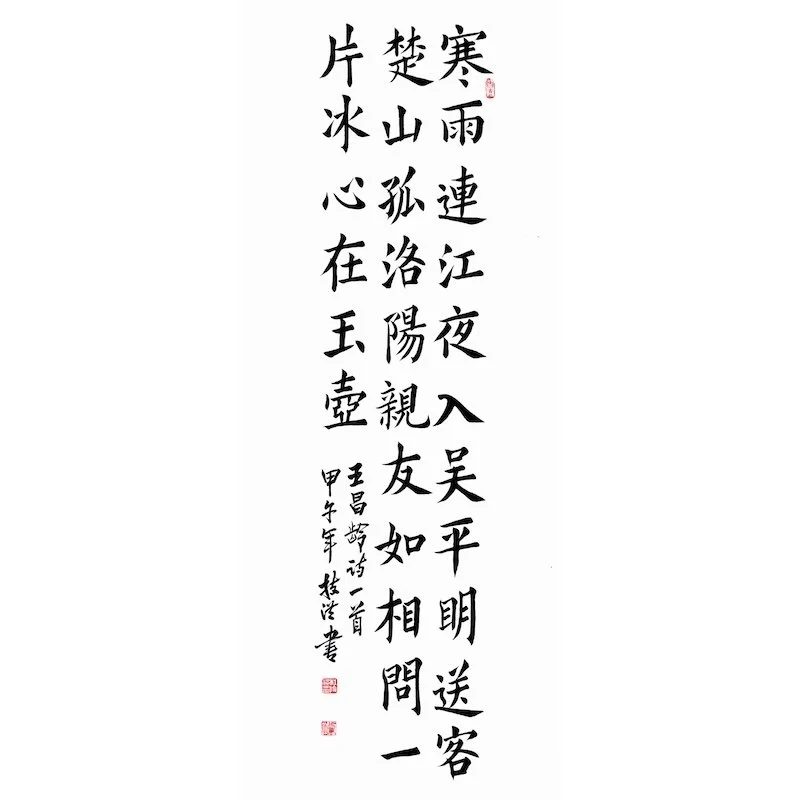 寒雨連江夜入吴平明送客
楚山孤洛陽親友如相問一
片冰心在玉壺
王昌齡诗一首
甲午年書